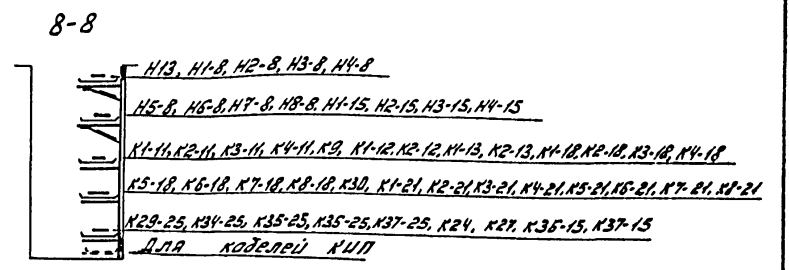 8-8
Н13, Н1-8, Н2-8, Н3-8, Н4-8
Н5-8, Н6-8, Н7-8, Н8-8. Н1-15, Н2-15, Н3-15, Н4-15
К1-11, К2-11, К3-11, К4-11, К9, К1-12, К2-12, К1-13, К2-13, К1-18, К2-18, К3-18, К4-18
К5-18, К6-18, К7-18, К8-18, К30, К1-21, К2-21, К3-21, К4-21, К5-21, К6-21, К7-21, К8-21
К29-25, К34-25, К35-25, К35-25, К37-25, К24, К27. К36-15, К37-15
Для кабелей КИП